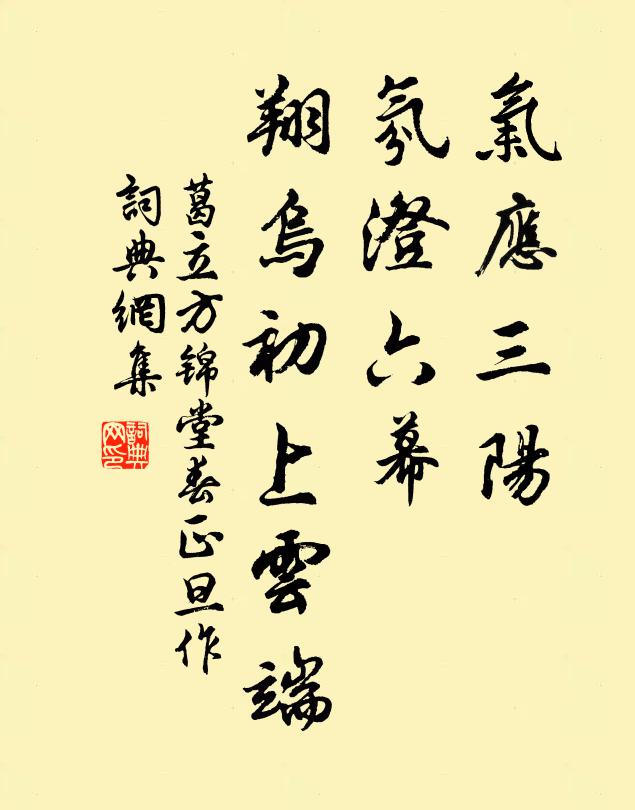 氣應三陽
氛澄六幕
翔烏初上雲端
葛立方錦堂春正旦作
詞典網集
詞典網印